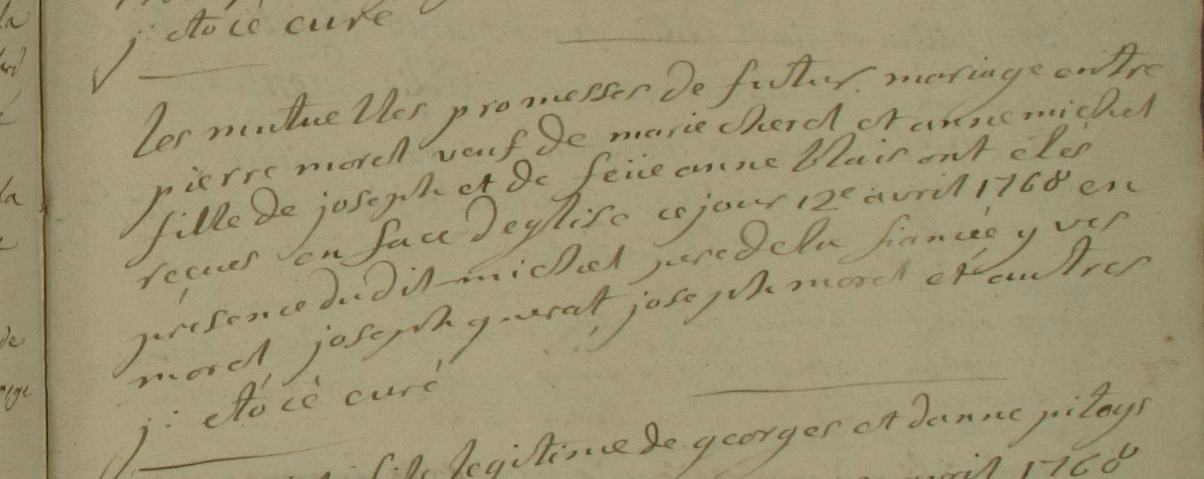 j: 
curé
Les mutuelles promesses de futur mariage entre
pierre morel veuf de marie cherel et anne michel
fille de joseph et de feüe anne blais ont étés
reçues en face deglise ce jour 12e avril 1768 en
présence dudit michel pere de la fiancée yves
morel joseph guerat, joseph morel et autres
j: 
curé
legitime de georges et danne pitoys
avril 1768